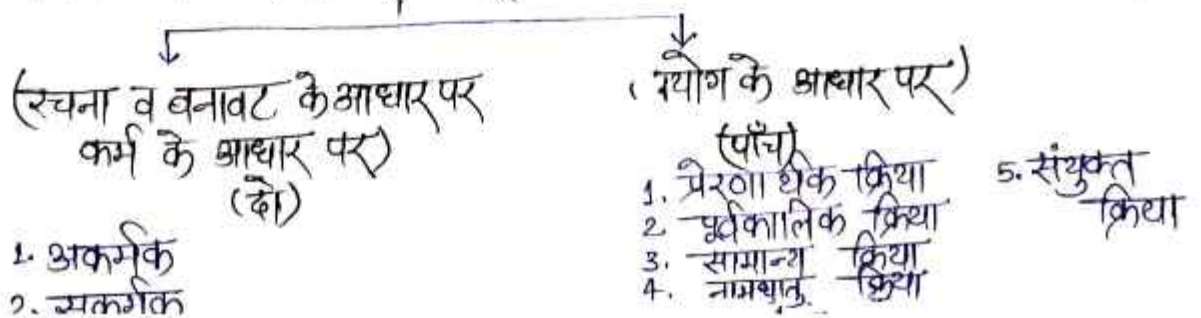 (रचना व बनावट के आधार पर
कर्म के आधार पर)
(दो)
1. अकर्मक
2. सकर्मक
(प्रयोग के आधार पर)
(पाँच)
1. प्रेरणार्थक क्रिया
2 पूर्वकालिक क्रिया
3. सामान्य क्रिया
4. नामधातु क्रिया
5. संयुक्त
क्रिया